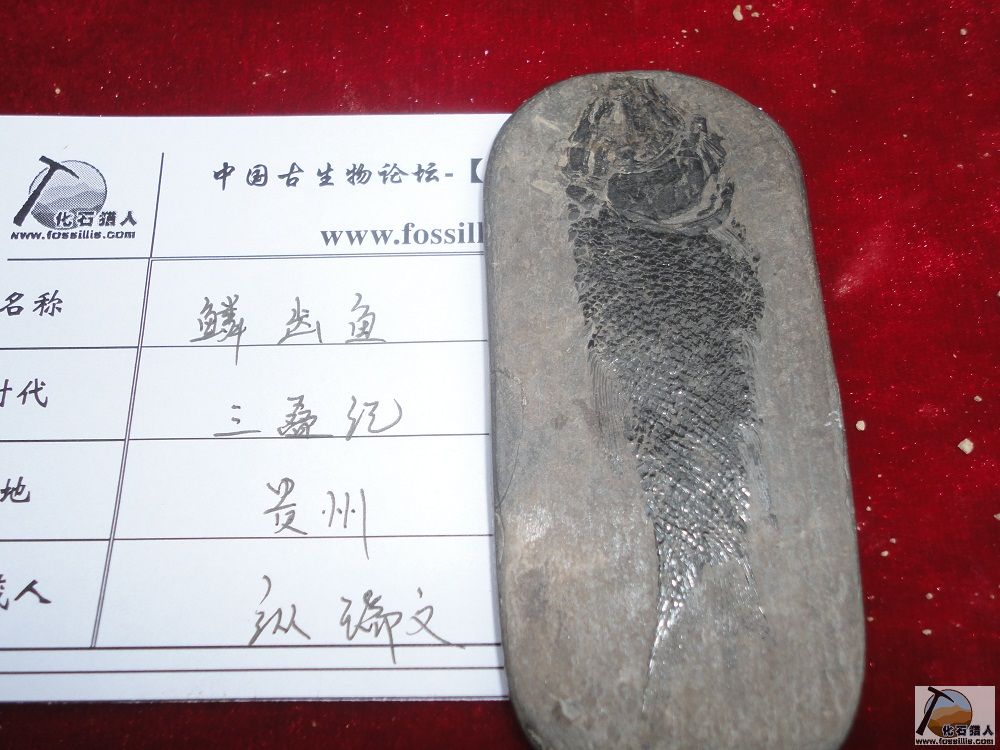 中国古生物论坛-【
化石猎人
www.fossillis.com
www.fossill
名称
鳞齿鱼
时代
三叠纪
地
贵州
人
纵瑞文
化石猎人
www.fossillis.com